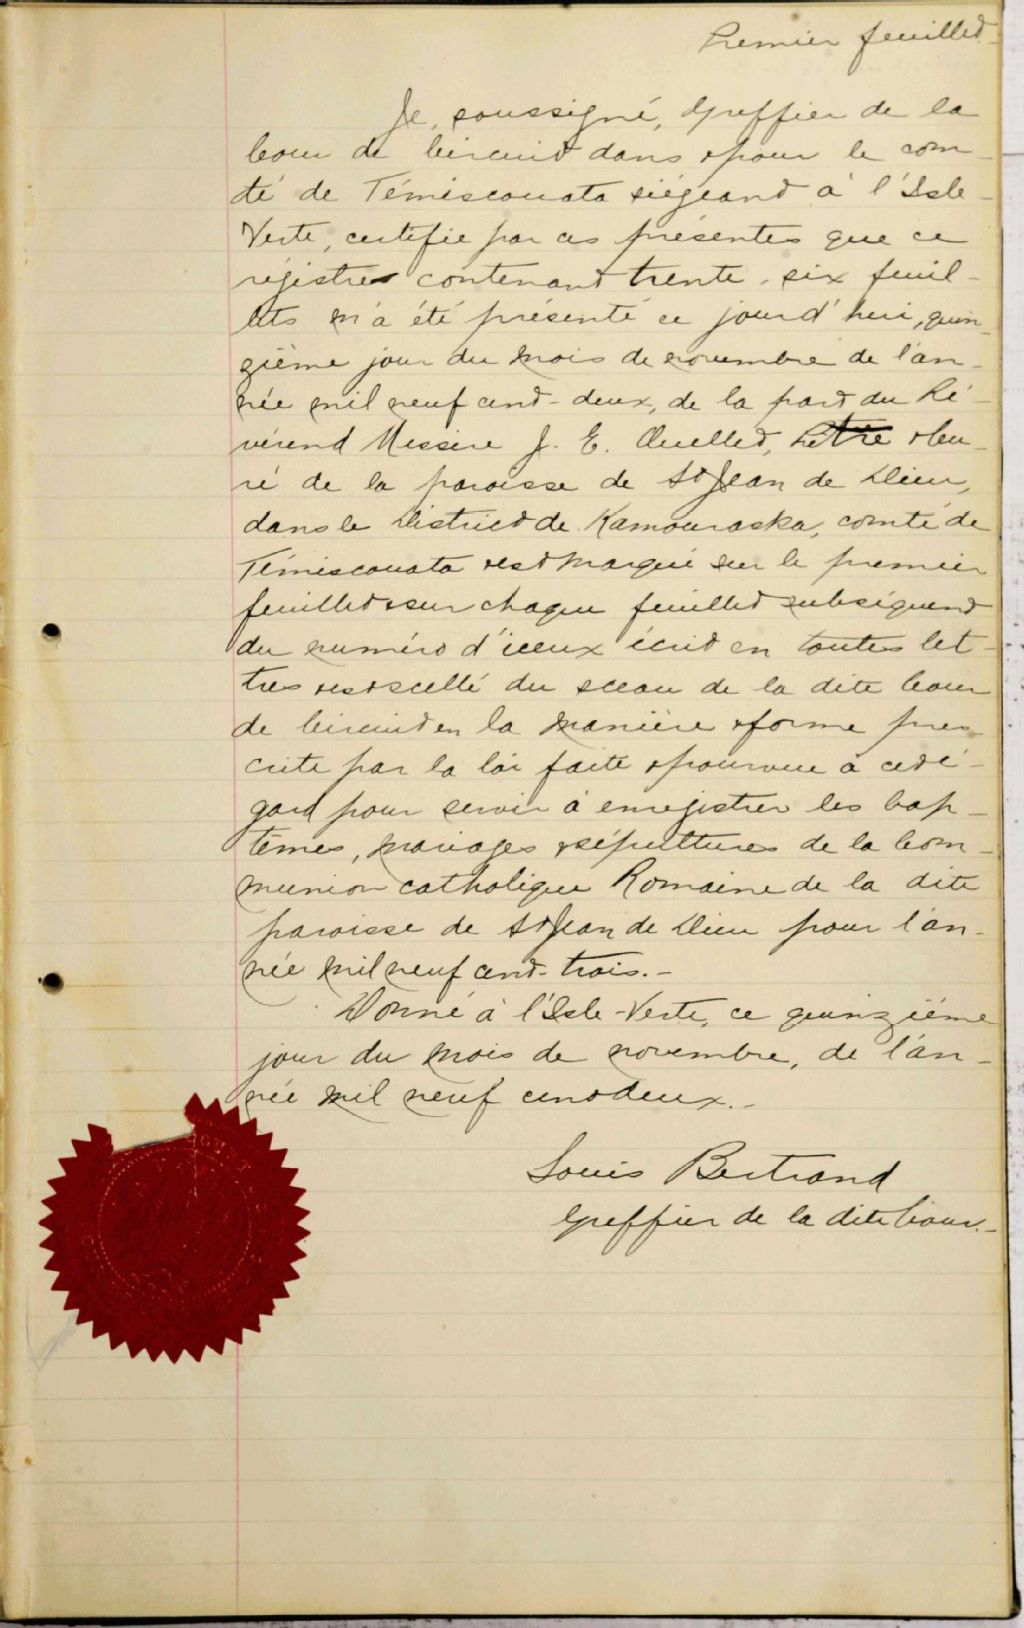 Premier feuillet
Je, soussigné, Greffier de la
Cour de Circuit dans & pour le com
té de Témiscouata siégeant à l'Isle-
Verte, certifie par ces présentes que ce
régistre contenant trente-six feuil-
lets m'a été présenté ce jourd'hui, quin-
zième jour du mois de novembre de l'an-
née mil neuf cent-deux, de la part du Ré-
vérend Messire J. E. Ouellet, Ptre & Cu-
ré de la paroisse de St Jean de Dieu,
dans le District de Kamouraska, comté de
Témiscouata & est marqué sur le premier
feuillet & sur chaque feuillet subséquent
du numéro d'iceux écrit en toutes let-
tres & est scellé du sceau de la dite Cour
de Circuit en la manière & forme pres
crite par la loi faite & pourvue à cet é-
gard pour servir à enregistrer les bap-
têmes, mariages & sépultures de la Com-
munion catholique Romaine de la dite
paroisse de St Jean de Dieu pour l'an-
née mil neuf cent-trois.-
Donné à l'Isle-Verte, ce quinzième
jour du mois de novembre, de l'an-
née mil neuf cent deux.-
Louis Bertrand
Greffier de la dite Cour.-